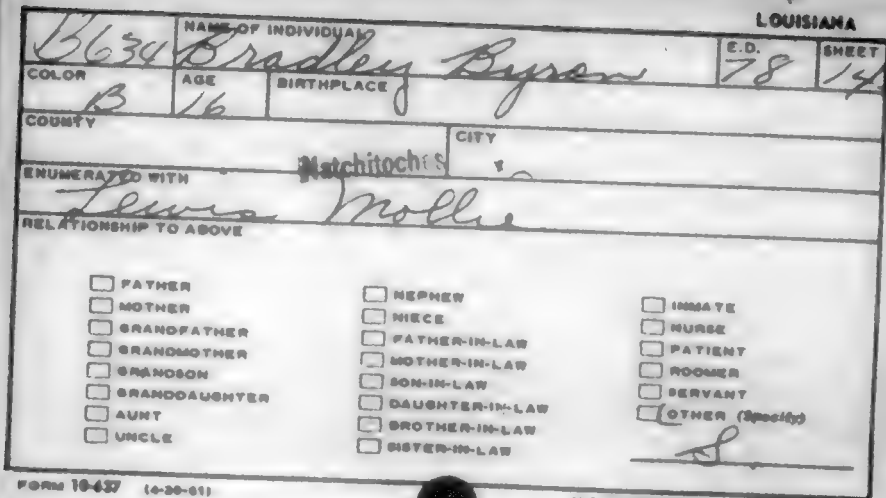 LOUISIANA
B634 NAME OF INDIVIDUAL Bradley Byron E.D. 78 SHEET 14
COLOR B AGE 16 BIRTHPLACE
COUNTY Natchitoches CITY
ENUMERATED WITH
Lewis Mollie
RELATIONSHIP TO ABOVE
FATHER
MOTHER
GRANDFATHER
GRANDMOTHER
GRANDSON
GRANDDAUGHTER
AUNT
UNCLE
NEPHEW
NIECE
FATHER-IN-LAW
MOTHER-IN-LAW
SON-IN-LAW
DAUGHTER-IN-LAW
BROTHER-IN-LAW
SISTER-IN-LAW
INMATE
NURSE
PATIENT
ROOMER
SERVANT
OTHER (Specify)
S
FORM 10-637 (4-20-61)